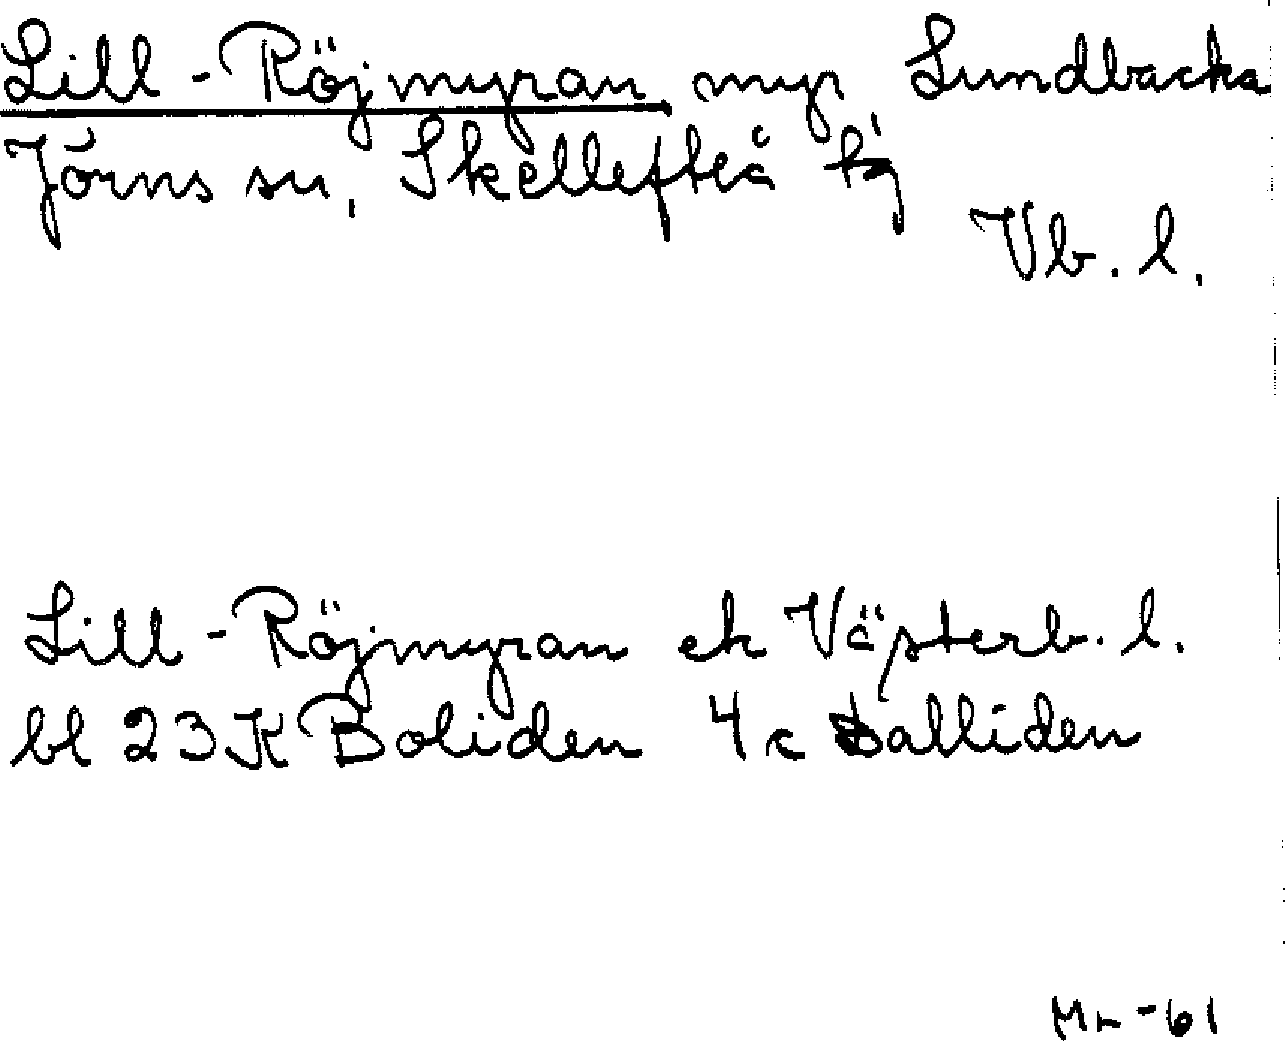 Lill-Röjmyran, myr Lundbacka
Jörns sn, Skellefteå tg
Vb. l.
Lill-Röjmyran ek Västerb. l.
bl 23K Boliden 4c Dalliden
-61